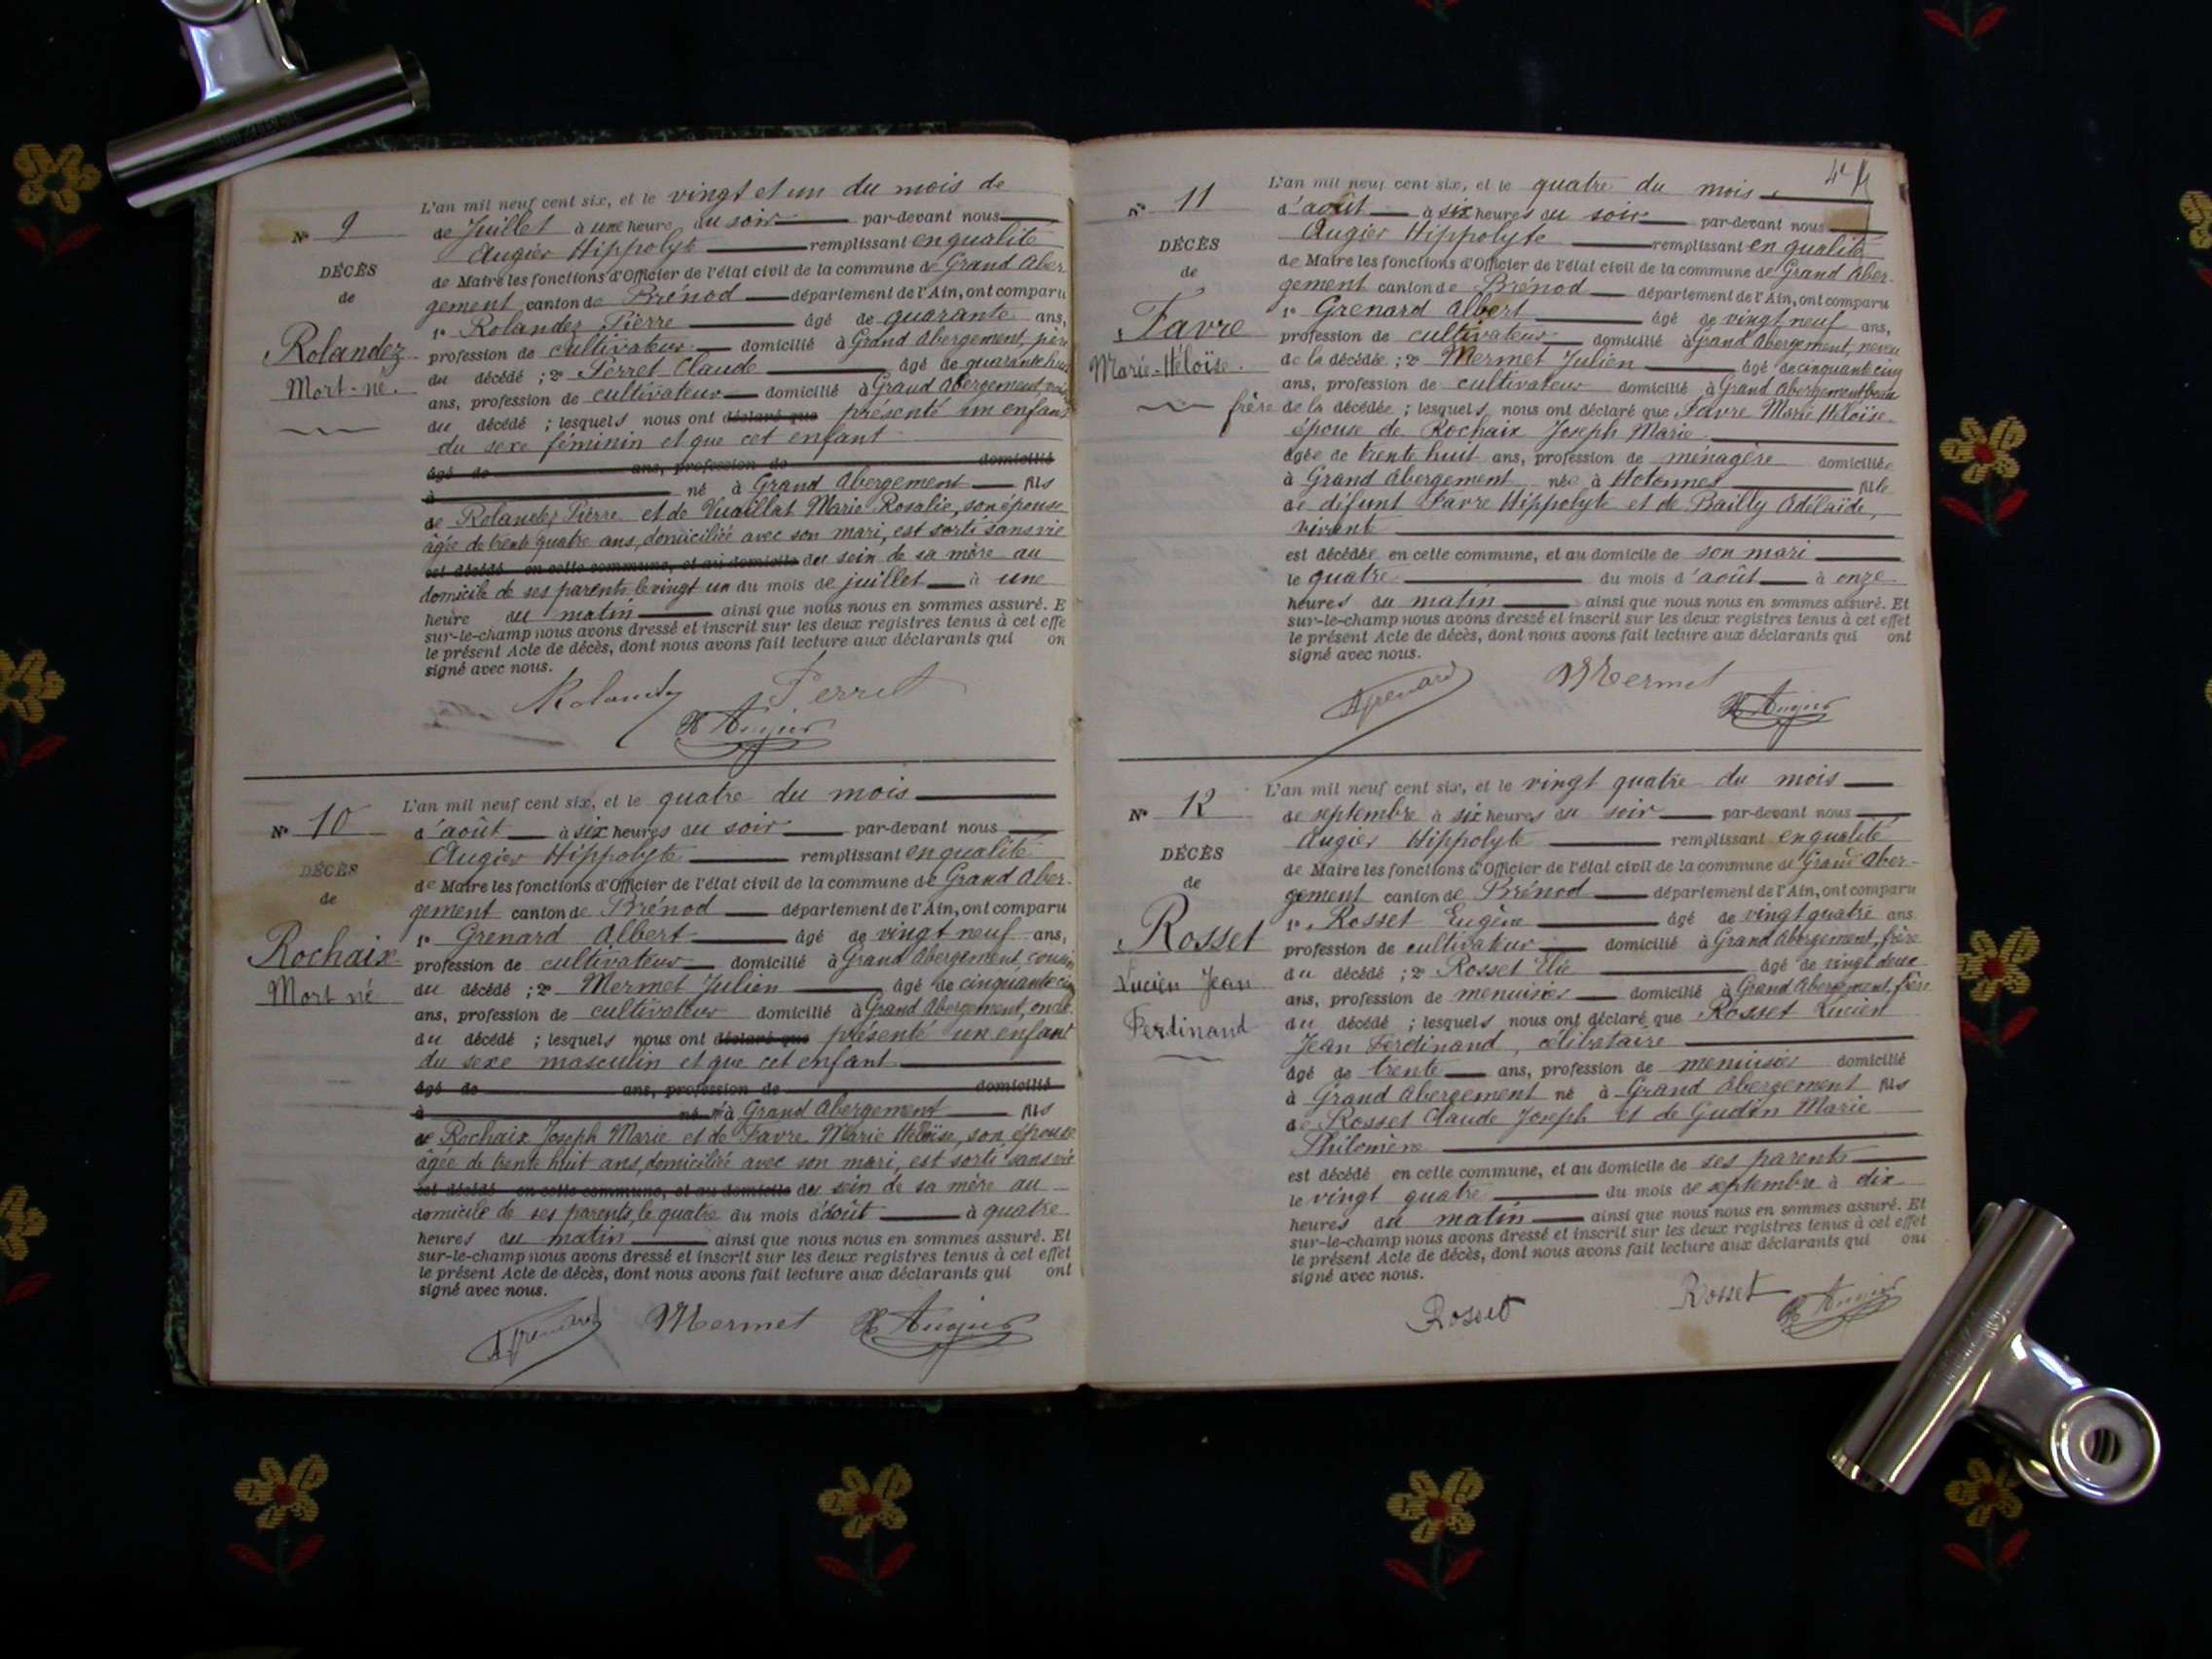 L'an mil neuf cent six, et le vingt et un du mois de
N° 9
de Juillet à une heure du soir par-devant nous
Augier Hippolyte remplissant en qualité
DÉCÈS
de Maire les fonctions d'Officier de l'état civil de la commune de Grand Aber-
de
gement canton de Brénod département de l'Ain, ont comparu
1° Rolandez Pierre âgé de quarante ans,
Rolandez
profession de cultivateur domicilié à Grand Abergement, père
Mort-né.
du décédé ; 2° Perret Claude âgé de quarante huit
ans, profession de cultivateur domicilié à Grand Abergement,
du décédé ; lesquels nous ont déclaré que présenté un enfant
du sexe féminin et que cet enfant
âgé de ans, profession de domicilié
à né à Grand Abergement fils
de Rolandez Pierre et de Vuaillat Marie Rosalie, son épouse
âgée de trente quatre ans, domiciliée avec son mari, est sorti sans vie
est décédé en cette commune, et au domicile du sein de sa mère au
domicile de ses parents le vingt un du mois de juillet à une
heure du matin ainsi que nous nous en sommes assuré. E
sur-le-champ nous avons dressé et inscrit sur les deux registres tenus à cet effe
le présent Acte de décès, dont nous avons fait lecture aux déclarants qui on
signé avec nous.
Rolandez Perret
H Augier
L'an mil neuf cent six, et le quatre du mois
N° 10
d'août à six heures du soir par-devant nous
Augier Hippolyte remplissant en qualité
DÉCÈS
de Maire les fonctions d'Officier de l'état civil de la commune de Grand Aber-
de
gement canton de Brénod département de l'Ain, ont comparu
1° Grenard Albert âgé de vingt neuf ans,
Rochaix
profession de cultivateur domicilié à Grand Abergement, cousin
Mort né
du décédé ; 2° Mermet Julien âgé de cinquante cinq
ans, profession de cultivateur domicilié à Grand Abergement, oncle
du décédé ; lesquels nous ont déclaré que présenté un enfant
du sexe masculin et que cet enfant
âgé de ans, profession de domicilié
à né à Grand Abergement fils
de Rochaix Joseph Marie et de Favre Marie Héloïse, son épouse
âgée de trente huit ans, domiciliée avec son mari, est sorti sans vie
est décédé en cette commune, et au domicile du sein de sa mère au
domicile de ses parents, le quatre du mois d'août à quatre
heures du matin ainsi que nous nous en sommes assuré. Et
sur-le-champ nous avons dressé et inscrit sur les deux registres tenus à cet effet
le présent Acte de décès, dont nous avons fait lecture aux déclarants qui ont
signé avec nous.
AGrenard Mermet H Augier
L'an mil neuf cent six, et le quatre du mois
N° 11
d'août à six heures du soir par-devant nous
Augier Hippolyte remplissant en qualité
DÉCÈS
de Maire les fonctions d'Officier de l'état civil de la commune de Grand Aber-
de
gement canton de Brénod département de l'Ain, ont comparu
1° Grenard Albert âgé de vingt neuf ans,
Favre
profession de cultivateur domicilié à Grand Abergement, neveu
Marie-Héloïse.
de la décédée ; 2° Mermet Julien âgé de cinquante cinq
ans, profession de cultivateur domicilié à Grand Abergement beau
frère de la décédée ; lesquels nous ont déclaré que Favre Marie Héloïse
épouse de Rochaix Joseph Marie
âgée de trente huit ans, profession de ménagère domiciliée
à Grand Abergement née à Hotonnes fille
de défunt Favre Hippolyte et de Bailly Adélaïde,
vivante
est décédée en cette commune, et au domicile de son mari
le quatre du mois d'août à onze
heures du matin ainsi que nous nous en sommes assuré. Et
sur-le-champ nous avons dressé et inscrit sur les deux registres tenus à cet effet
le présent Acte de décès, dont nous avons fait lecture aux déclarants qui ont
signé avec nous.
AGrenard Mermet
H Augier
L'an mil neuf cent six, et le vingt quatre du mois
N° 12
de septembre à six heures du soir par-devant nous
Augier Hippolyte remplissant en qualité
DÉCÈS
de Maire les fonctions d'Officier de l'état civil de la commune de Grand Aber-
de
gement canton de Brénod département de l'Ain, ont comparu
1° Rosset Eugène âgé de vingt quatre ans
Rosset
profession de cultivateur domicilié à Grand Abergement, frère
du décédé ; 2° Rosset Elie âgé de vingt deux
Lucien Jean
ans, profession de menuisier domicilié à Grand Abergement, frère
Ferdinand
du décédé ; lesquels nous ont déclaré que Rosset Lucien
Jean Ferdinand, célibataire
âgé de trente ans, profession de menuisier domicilié
à Grand Abergement né à Grand Abergement fils
de Rosset Claude Joseph et de Gudin Marie
Philomène
est décédé en cette commune, et au domicile de ses parents
le vingt quatre du mois de septembre à dix
heures du matin ainsi que nous nous en sommes assuré. Et
sur-le-champ nous avons dressé et inscrit sur les deux registres tenus à cet effet
le présent Acte de décès, dont nous avons fait lecture aux déclarants qui ont
signé avec nous.
Rosset Rosset H Augier